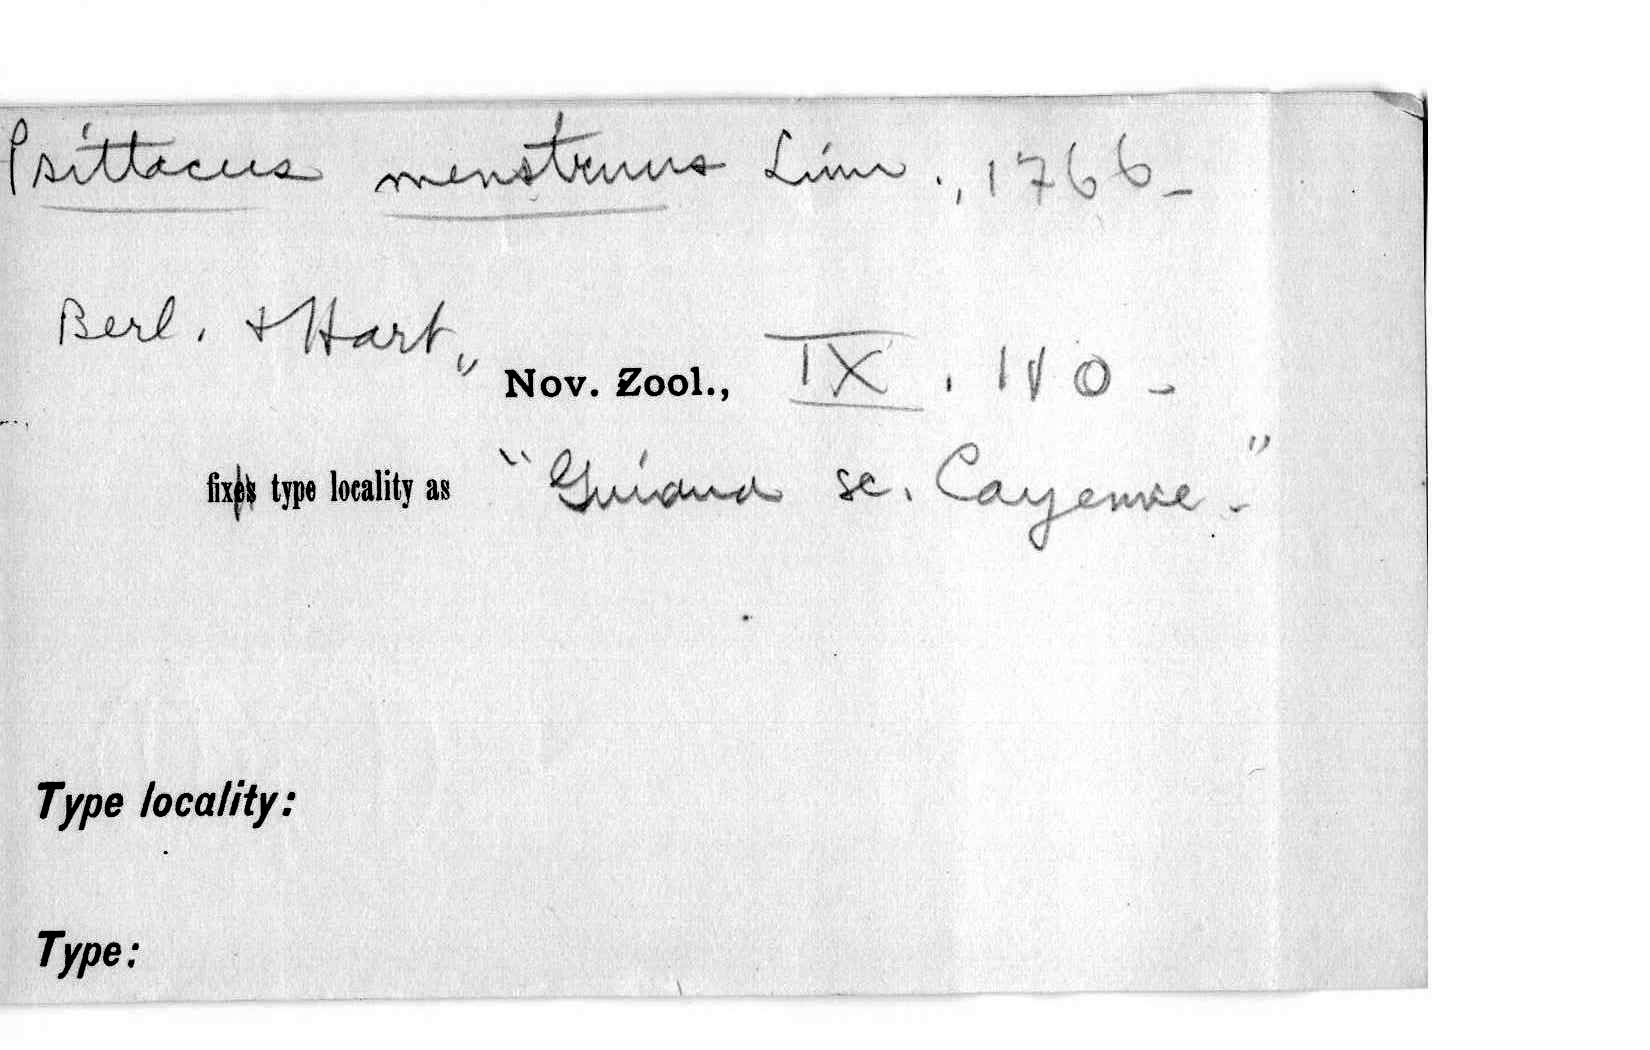 Psittacus menstruus Linn., 1766–
Berl. & Hart,, Nov. Zool., IX. 110–
fixes type locality as "Guiana sc. Cayenne–"
Type locality:
Type: